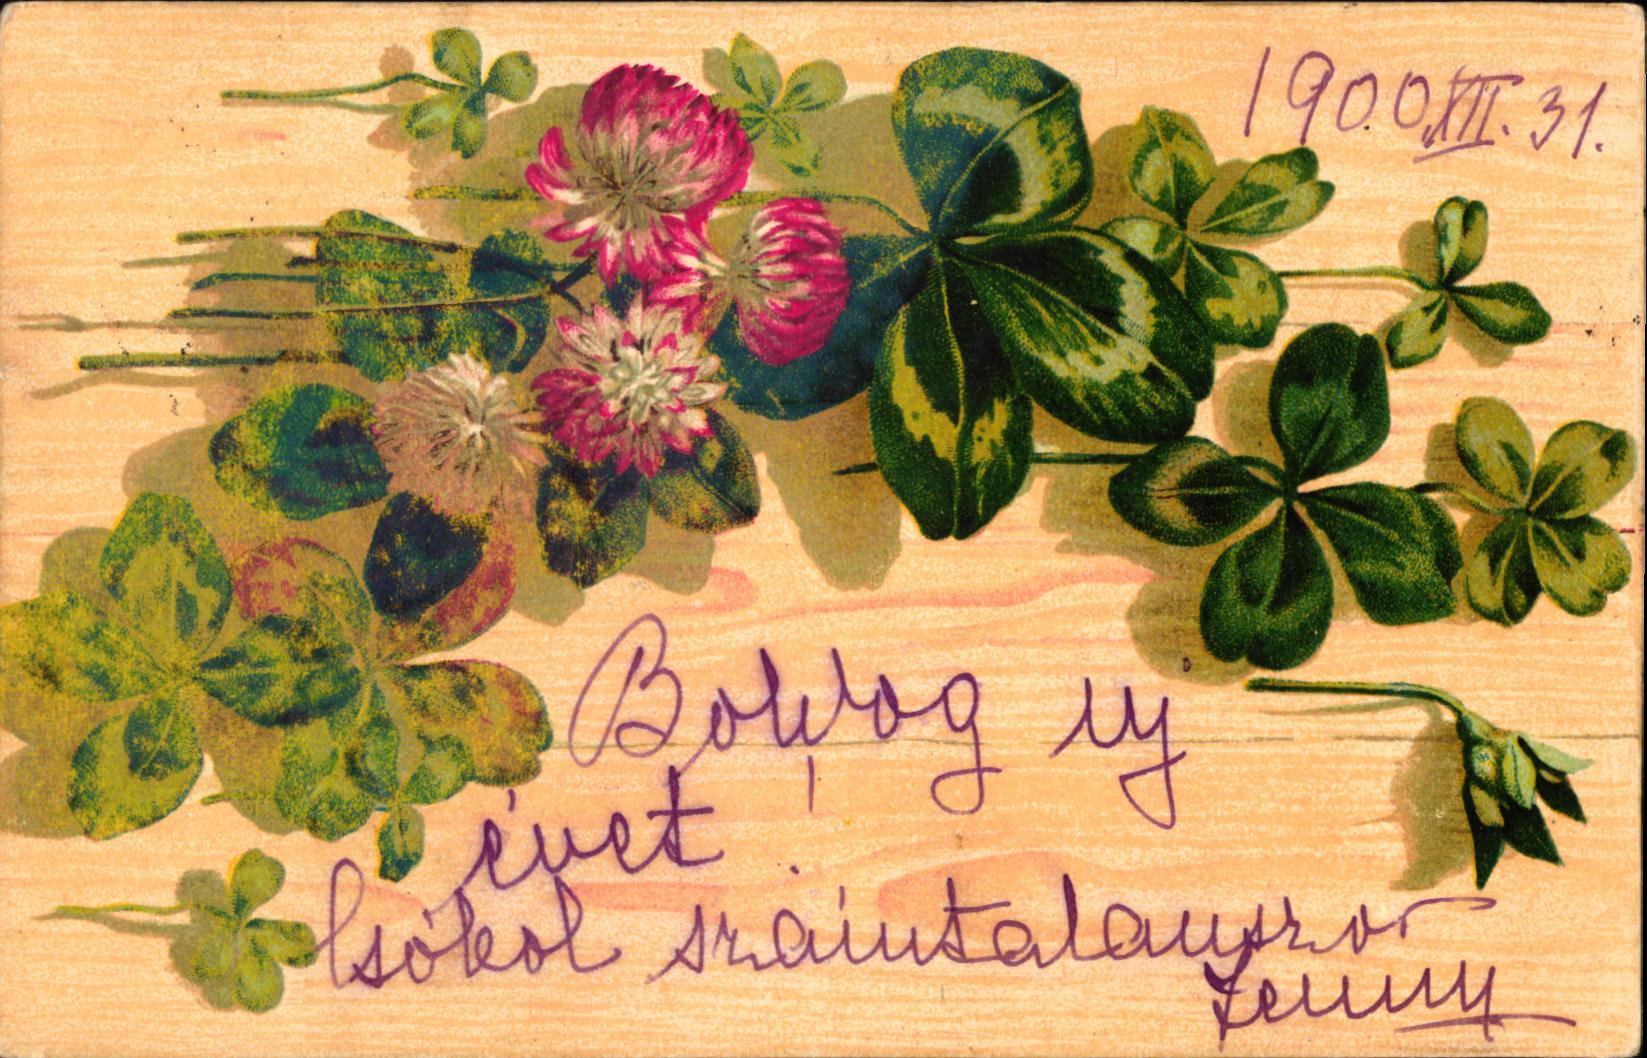 1900 XII. 31.
Boldog uj
évet!
Csókol számtalanszor
Jenny